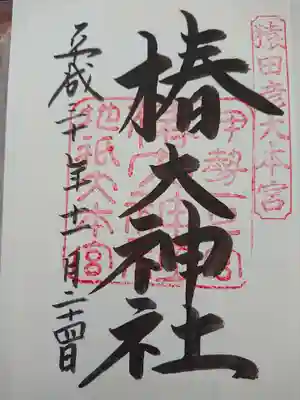 猿田彦大本宮
椿大神社
伊勢一宮
地祇大本宮
平成二十年十一月二十四日